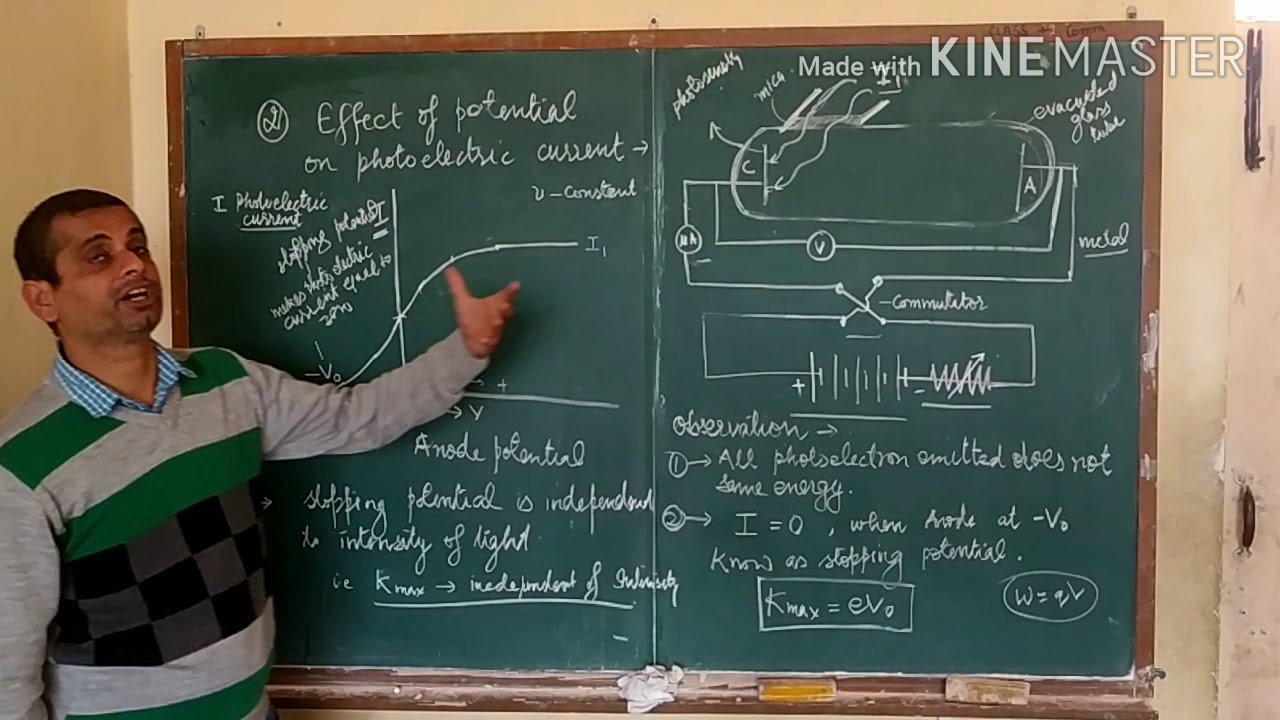 CLASS
Made with KINEMASTER
2) Effect of potential
on photoelectric current →
ν - Constant
I Photoelectric
current
stopping potential
makes photo electric
current equal to
zero
I
I₁
-V₀
→ +
→ V
Anode potential
→ stopping potential is independent
to intensity of light.
ie Kmax → inedpendent of Intensity
photosensity
mica
I₁
evacuated
glass
tube
C
A
μA
V
metal
- commutator
+
-
Observation →
① → All photoelectron emitted does not
same energy.
② → I = 0, when Anode at -V₀
Know as stopping potential.
Kmax = eV₀
W = qV